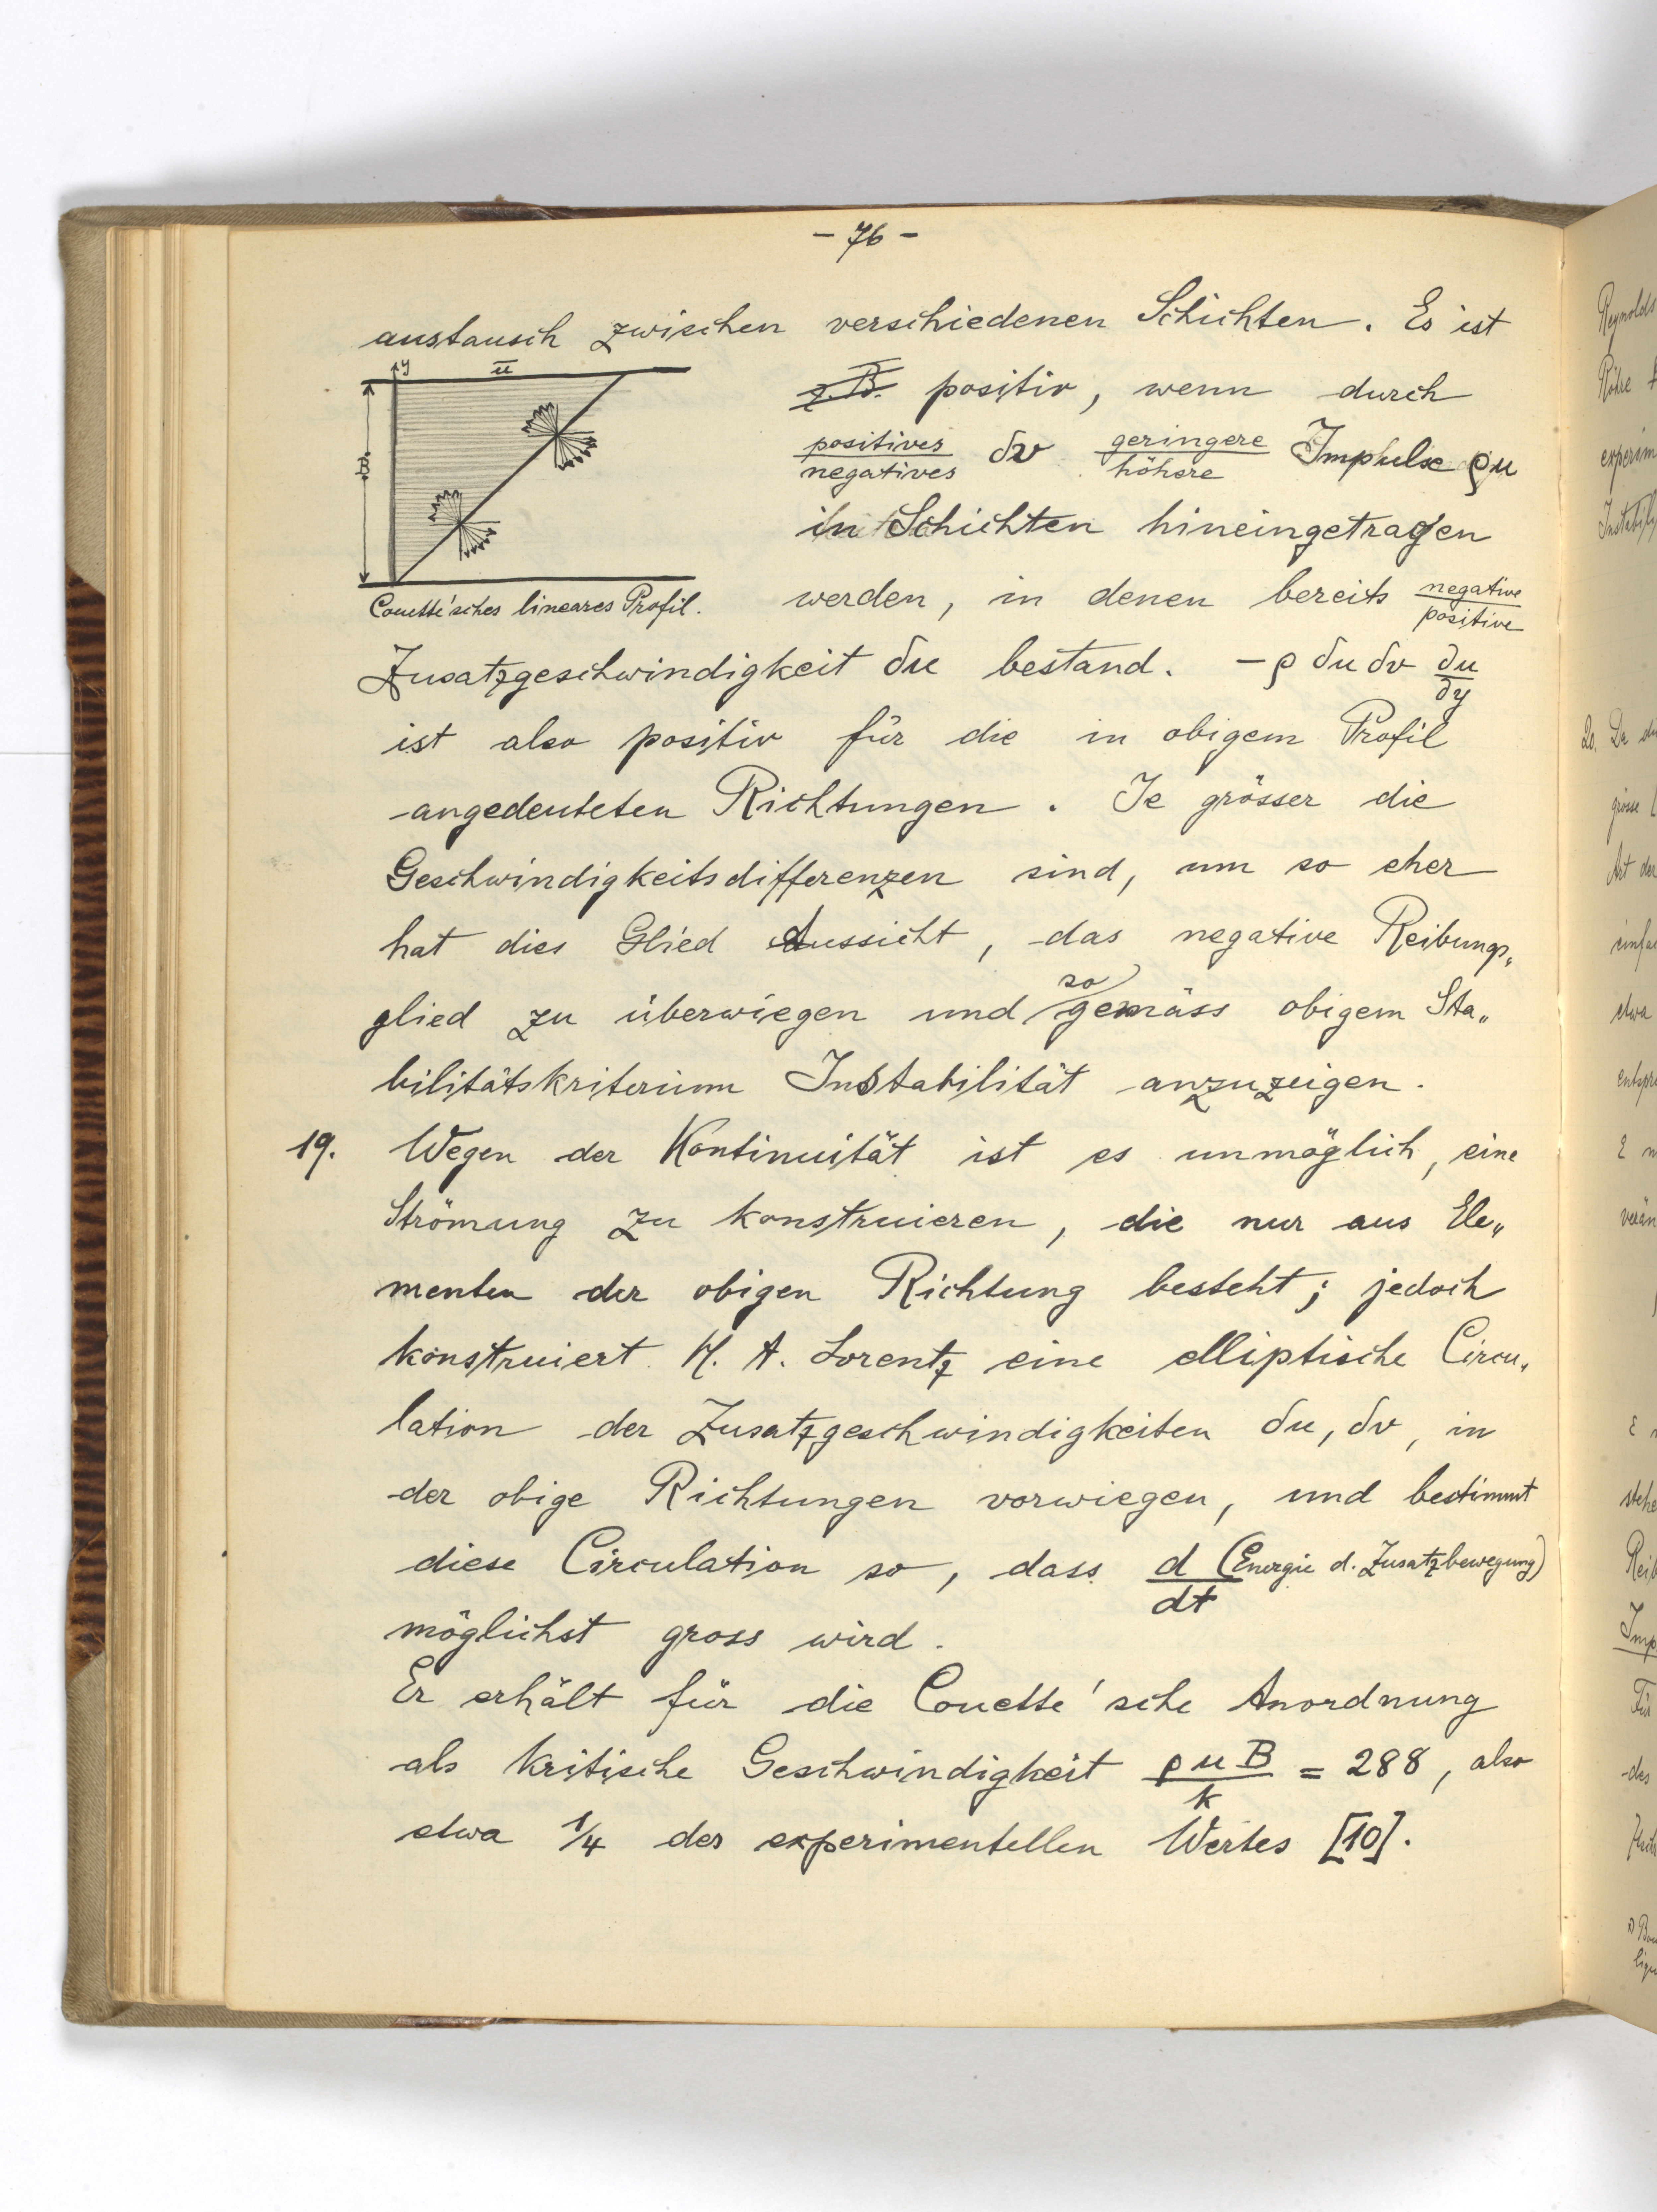 - 76 -
austausch zwischen verschiedenen Schichten. Es ist
y
ū
B
Couette'sches lineares Profil.
z.B. positiv, wenn durch
positives/negatives δv geringere/höhere Impulse ρu
in Schichten hineingetragen
werden, in denen bereits negative/positive
Zusatzgeschwindigkeit δu bestand. -ρ δu δv ∂u/∂y
ist also positiv für die in obigem Profil
angedeuteten Richtungen. Je grösser die
Geschwindigkeitsdifferenzen sind, um so eher
hat dies Glied Aussicht, das negative Reibungs„
glied zu überwiegen und so gemäss obigem Sta„
bilitätskriterium Instabilität anzuzeigen.
19. Wegen der Kontinuität ist es unmöglich, eine
Strömung zu konstruieren, die nur aus Ele„
menten der obigen Richtung besteht; jedoch
konstruiert H. A. Lorentz eine elliptische Circu„
lation der Zusatzgeschwindigkeiten δu, δv, in
der obige Richtungen vorwiegen, und bestimmt
diese Circulation so, dass d/dt (Energie d. Zusatzbewegung)
möglichst gross wird.
Er erhält für die Couette'sche Anordnung
als kritische Geschwindigkeit ρuB/k = 288, also
etwa 1/4 des experimentellen Wertes [10].
Reynolds
Röhre
experim
20. Da
grösse
Art der
etwa